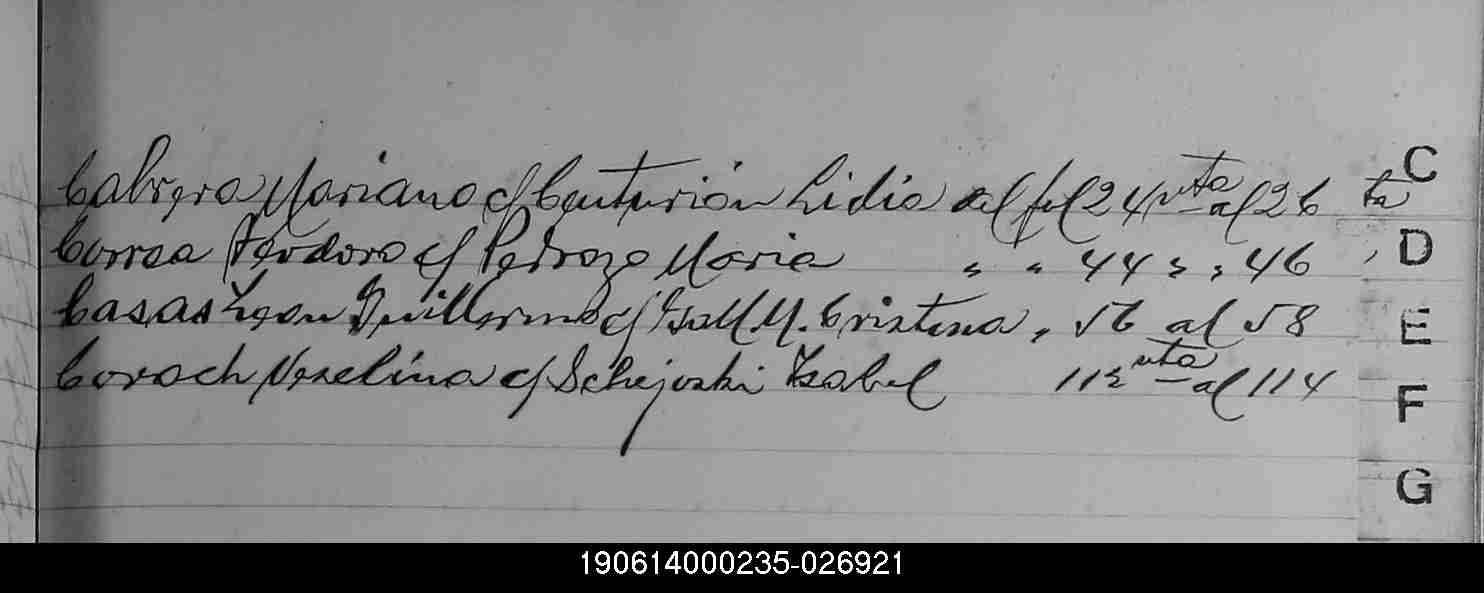 Cabrera Mariano c/ Centurión Lidia al fol 24 vta al 26 ta
Correa Teodoro c/ Pedrozo Maria " " 44 " " 46
Casas León Guillermo c/ M. Cristina, 56 al 58
Coroch c/ Isabel 112 vta al 114
C
D
E
F
G
190614000235-026921